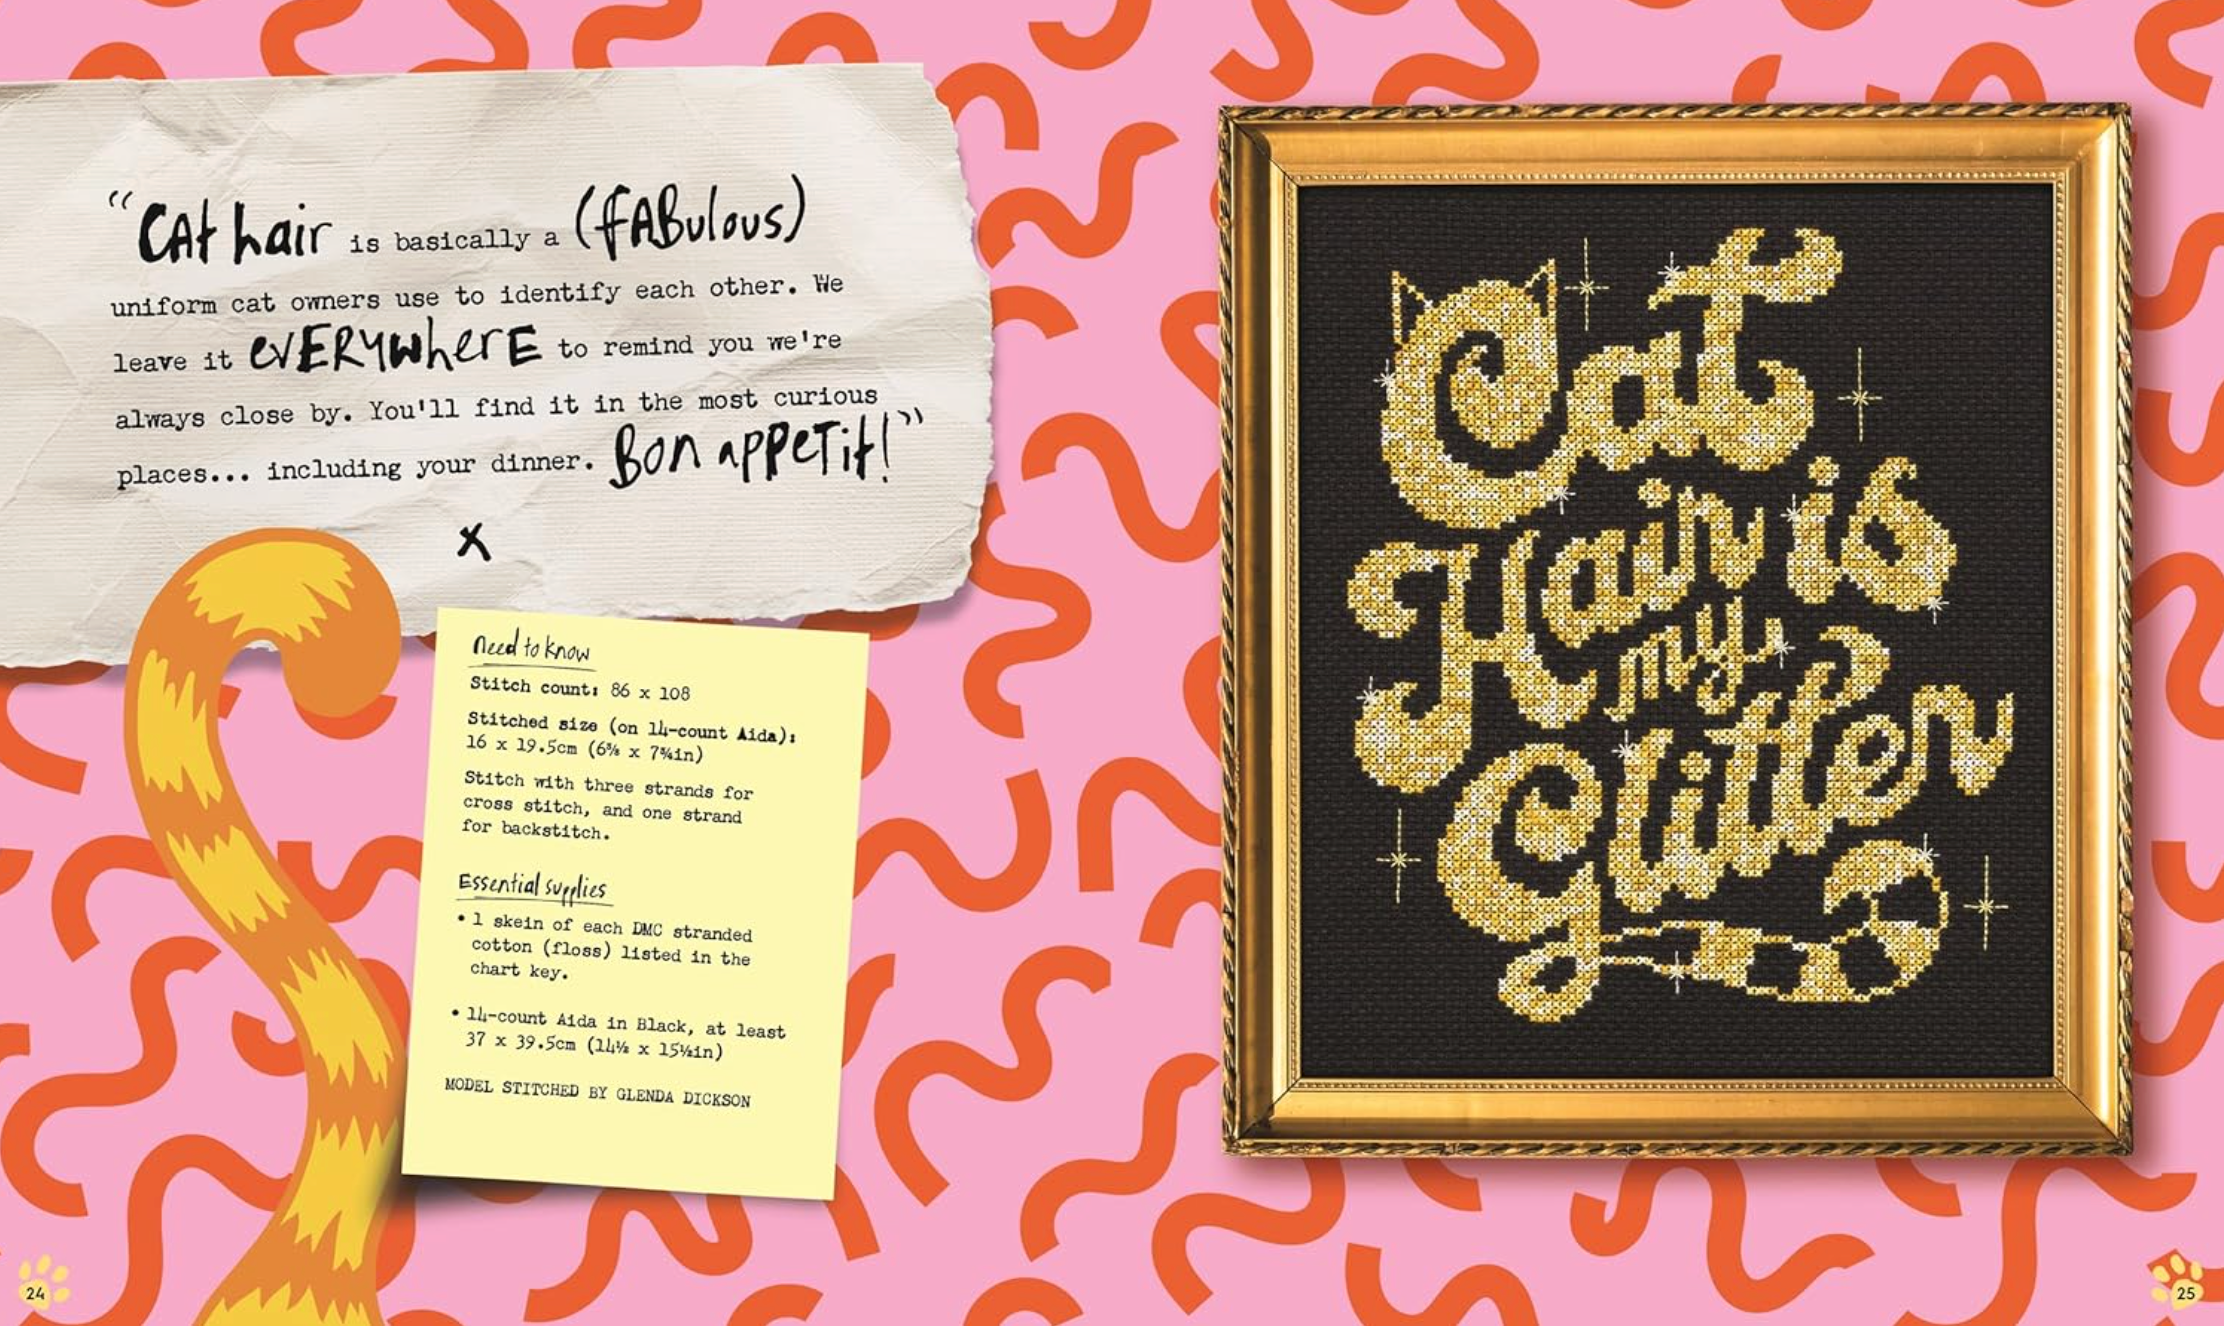 “CAt hair is basically a (fABulous)
uniform cat owners use to identify each other. We
leave it evERYwherE to remind you we're
always close by. You'll find it in the most curious
places... including your dinner. Bon appeTit!”
x
need to know
Stitch count: 86 x 108
Stitched size (on 14-count Aida):
16 x 19.5cm (6⅜ x 7¾in)
Stitch with three strands for
cross stitch, and one strand
for backstitch.
Essential supplies
• 1 skein of each DMC stranded
cotton (floss) listed in the
chart key.
• 14-count Aida in Black, at least
37 x 39.5cm (14½ x 15½in)
MODEL STITCHED BY GLENDA DICKSON
24
Cat
Hair is
my
Glitter
25